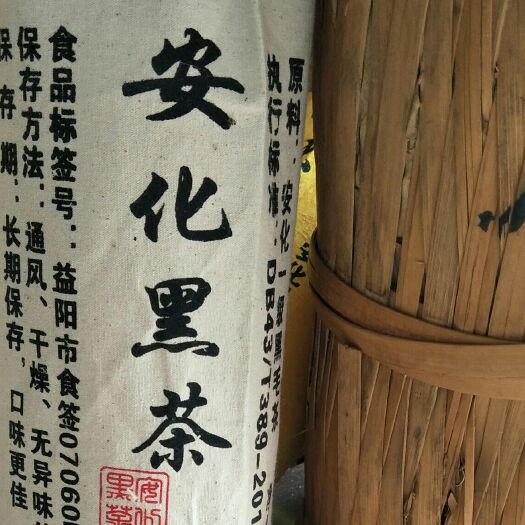 原料：安化一级黑毛茶
执行标准：DB43/T389-201
安化黑茶
食品标签号：益阳市食签070605
保存方法：通风、干燥、无异味
保存期：长期保存，口味更佳
安化
黑茶